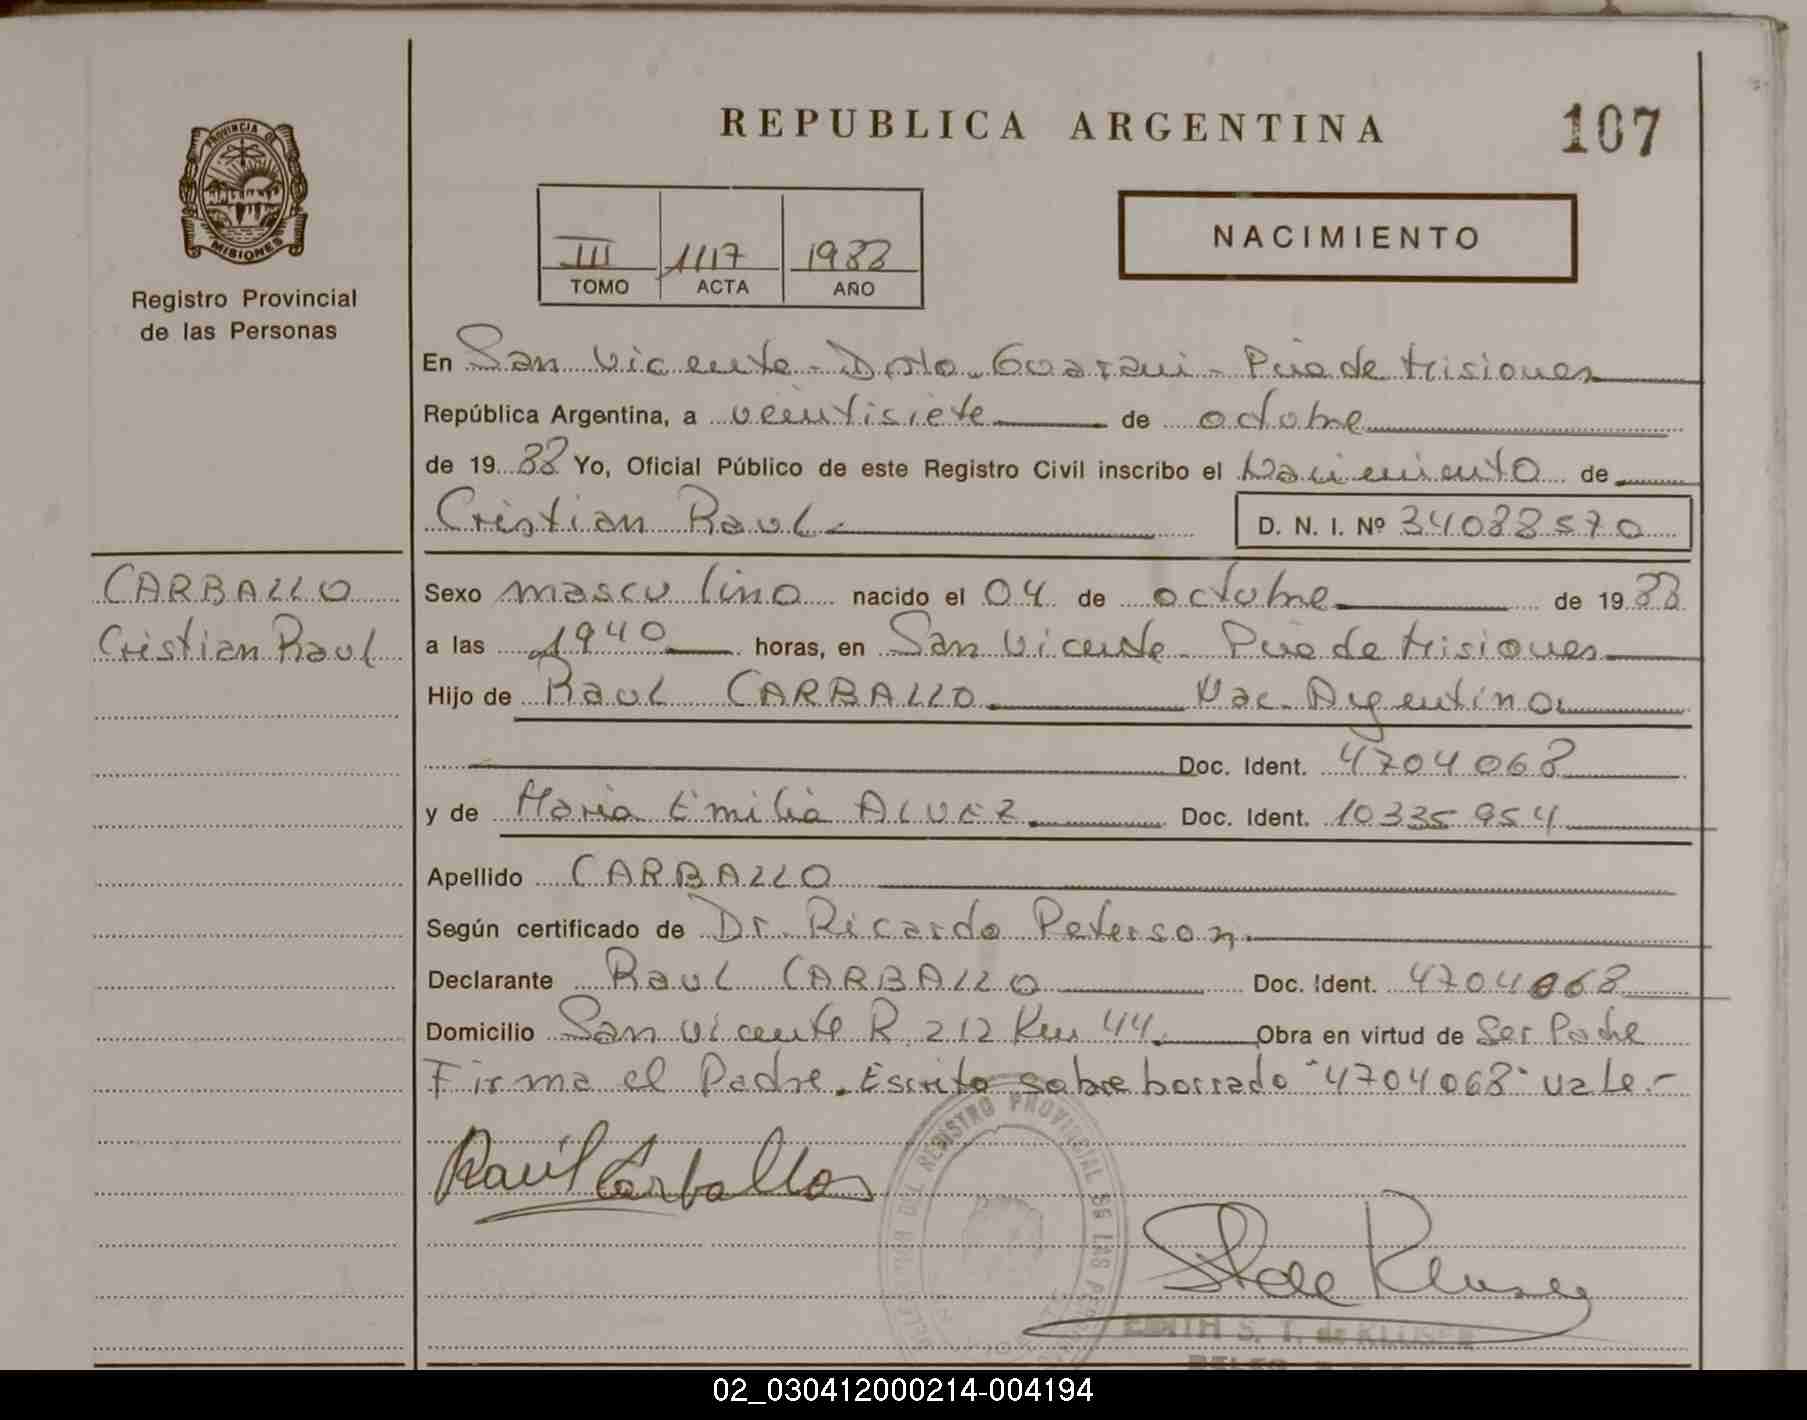 REPUBLICA ARGENTINA
107
PROVINCIA DE
MISIONES
Registro Provincial
de las Personas
III 1117 1988
TOMO ACTA AÑO
NACIMIENTO
En San Vicente - Dpto. Guarani - Pcia de Misiones
República Argentina, a veintisiete de octubre
de 19 88 Yo, Oficial Público de este Registro Civil inscribo el Nacimiento de
Cristian Raul D. N. I. Nº 34088570
CARBALLO
Cristian Raul
Sexo masculino nacido el 04 de octubre de 19 88
a las 1940 horas, en San Vicente Pcia de Misiones
Hijo de Raul CARBALLO Nac. Argentino
Doc. Ident. 4704068
y de Maria Emilia ALVEZ Doc. Ident. 10335954
Apellido CARBALLO
Según certificado de Dr. Ricardo Peterson
Declarante Raul CARBALLO Doc. Ident. 4704068
Domicilio San Vicente R. 212 Km 44. Obra en virtud de Ser Padre
Firma el Padre. Escrito sobre borrado "4704068" vale.-
Raúl Carballo
DEL REGISTRO PROVINCIAL DE LAS
S. T. de Kluser
EDITH S. T. de KLUSER
02_030412000214-004194